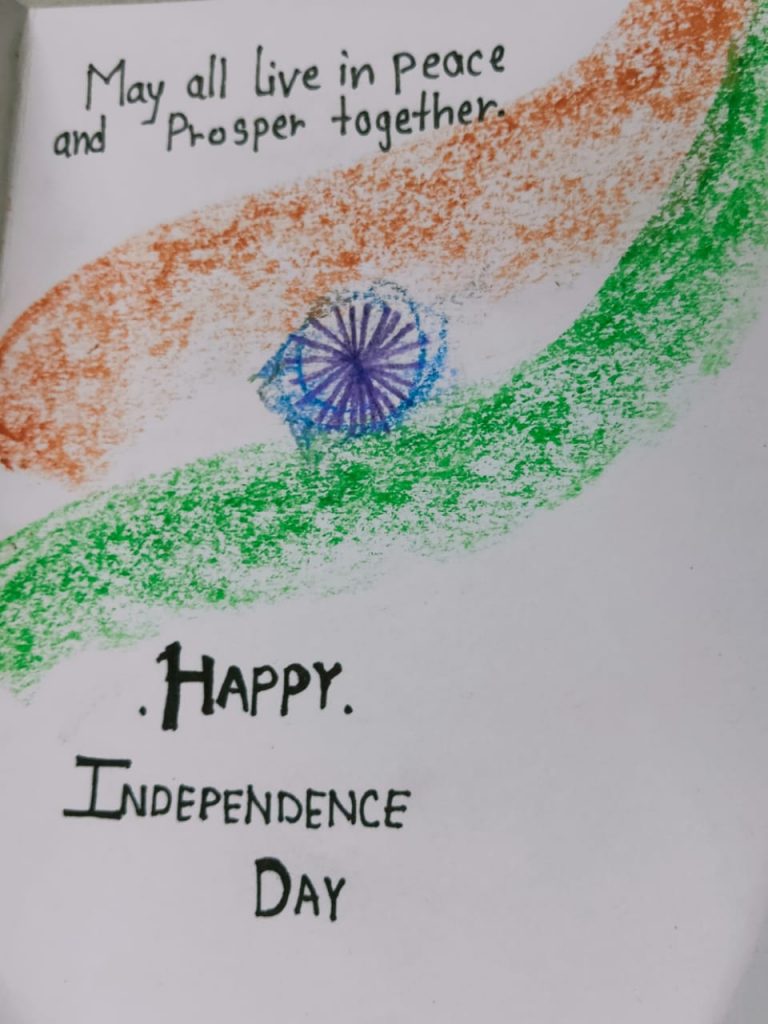 May all live in peace
and Prosper together.
. HAPPY.
INDEPENDENCE
DAY